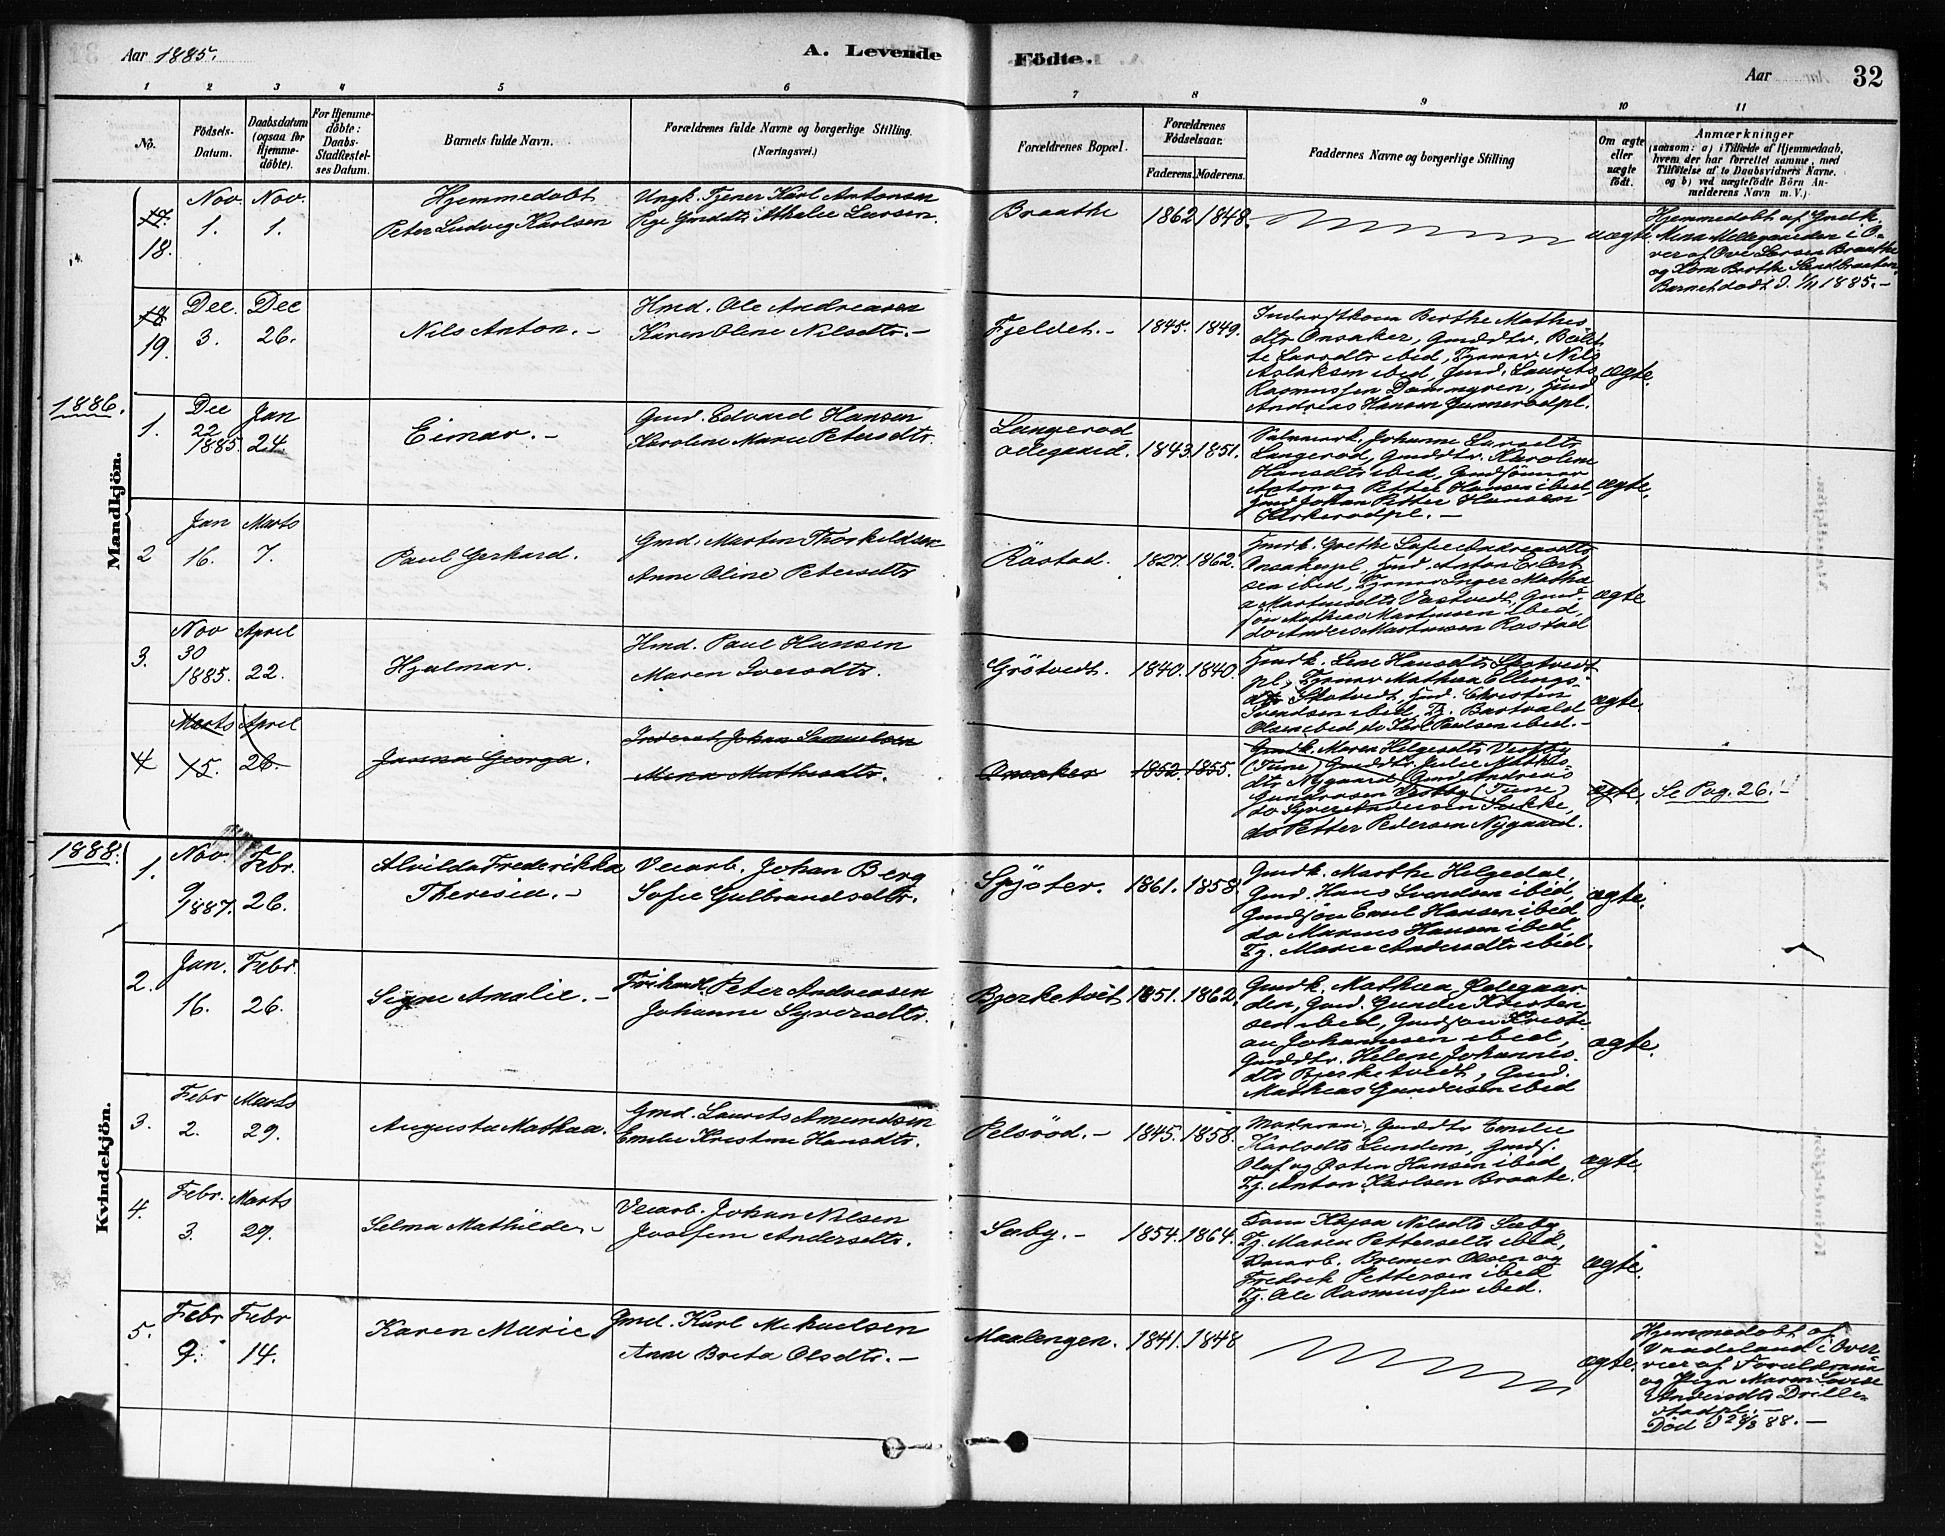 Aar 1885.
A. Levende
Födte.
Aar
32
1 2 3 4 5 6 7 8 9 10 11
No.
Födsels-
Datum.
Daabsdatum
(ogsaa for
Hjemme-
döbte).
For Hjemme-
döbte:
Daabs-
Stadfæstel-
ses Datum.
Barnets fulde Navn.
Forældrenes fulde Navne og borgerlige Stilling.
(Næringsvei.)
Forældrenes Bopæl.
Forældrenes
Födselsaar.
Faderens. Moderens.
Faddernes Navne og borgerlige Stilling
Om ægte
eller
uægte
födt.
Anmærkninger
(saasom: a) i Tilfælde af Hjemmedaab,
hvem der har forrettet samme, med
Tilföielse af to Daabsvidners Navne,
og b) ved uægtefödte Börn An-
melderens Navn m.V.)
Mandkjön.
17.
18.
Nov.
1.
Nov.
1.
Hjemmedobt
Peter Ludvig Karlsen
Ungk. Tjener Karl Antonsen
Pige Gmdts Athalie Larsen.
Braathe
1862 1848.
uægte
Hjemmedobt af Gmdk.
ver af Ove Larsen Braathe
Barnet dodt d. 1/11 1885.-
18
19.
Dec.
3.
Dec
26.
Nils Anton.-
Hmd. Ole Andreasen
Karen Oline Nilsdtr.-
Fjeldet.-
1845. 1849.
Inderstkone Berthe Mathis
dtr Onsaker, Gmddtr.
te Larsdtr ibid, Tjener Nils
Aslaksen ibid, Gmd. Laurits
Rasmussen Dammyren, Gmd
Andreas Hansen
ægte.
1886.
1.
Dec
22
1885.
Jan
24
Einar.-
Gmd. Edvard Hansen
Karoline Marie Petersdtr.
Langerod
odegaard.
1843. 1851.
Johanne Larsdtr
Langerod, Gmddtr. Karoline
Hansdtr ibid, Gmdsönner
Anton og Petter Hansen ibid,
Gmd Johan Petter Hansen
Kirkerodpl.-
ægte,
2
Jan
16.
Marts
7.
Paul Gerhard.
Gmd. Morten Thorkildsen
Anne Oline Petersdtr
Råstad.
1827. 1862.
Gmdk. Grethe Sofie Andreasdtr
Onsakerpl, Gmd. Anton
sen ibid, Tjener Inger Mathe
a Martinsdtr Vestvedt, Gmd
Mathias Martinsen ibid,
do Anders Martinsen Rastad
ægte
3.
Nov
30
1885.
April
22.
Hjalmar.
Hmd. Paul Hansen
Maren Iversdtr.
Gröstvedt.
1840. 1840.
Gmdk. Lene Hansdtr
pl, Tjener Mathea Ellings-
dtr Skotvedt, Gmd. Christen
Svendsen ibid, Tj.
Olsen ibid, do Karl Paulsen ibid.-
ægte.
4
Marts
15.
April
26
Janna Georga.
Inderst Johan Samuelsen
Mina Mathisdtr.
Onsaker
1852. 1855.
Gmdk. Maren Helgesdtr Vestby
(Tune) Gmddtr. Julie Mathis-
dtr Nygaard, Gmd Andreas
Gundersen Vestby (Tune)
do Syver Andersen Sukke,
do Petter Pedersen Nygaard.
ægte.
Se Pag. 26.-
Kvindekjön.
1888.
1.
Nov.
9/1887.
Febr.
26.
Alvilda Frederikka
Theresia.-
Veiarb. Johan Berg
Sofie Gulbrandsdtr.
Spjöter.
1861. 1858.
Gmdk. Marthe Helgedal,
Gmd. Hans Svendsen ibid,
Gmdsön Emil Hansen ibid,
do Marius Hansen ibid,
Tj. Marie Andersdtr ibid.
ægte.
2.
Jan.
16.
Febr.
26.
Signe Amalie.-
Peter Andreasen
Johanne Syversdtr.
Bjerketvet
1851. 1862.
Gmdk. Mathea
den, Gmd. Gunder Kristen
sen ibid, Gmdsön Kristi
an Johannesen ibid,
Gmddtr. Helene Johannis
dtr Bjerketvedt, Gmd.
Mathias Gundersen ibid
ægte.
3.
Febr
2.
Marts
29.
Augusta Mathea.
Gmd. Laurits Amundsen
Emilie Kristine Hansdtr.
Pelsröd.-
1845. 1858.
Moderen, Gmddtr Emilie
Karlsdtr Lundem, Gmds.
Olaf og Osten Hansen ibid,
Tj. Anton Karlsen Braate.
ægte
4.
Febr.
3.
Marts
29.
Selma Mathilde.-
Veiarb. Johan Nilsen
Josefine Andersdtr.
Saby.-
1854. 1864.
Kone Kajsa Nilsdtr Saby,
Tj. Maren Pettersdtr ibid,
Veiarb. Bremer Olsen og
Fredrik Pettersen ibid
Tj. Ole Rasmussen ibid.
ægte.
5.
Febr
9.
Febr
14.
Karen Marie
Gmd. Karl Mikaelsen
Anne Brita Olsdtr.-
Maalengen.
1841. 1848
ægte.
Hjemmedobt af
Vaadeland i Over-
vær af Forældrene
og Pigen Maren Lovise
Andersdtr Drille-
stadpl.-
Død d 28/3 88.-